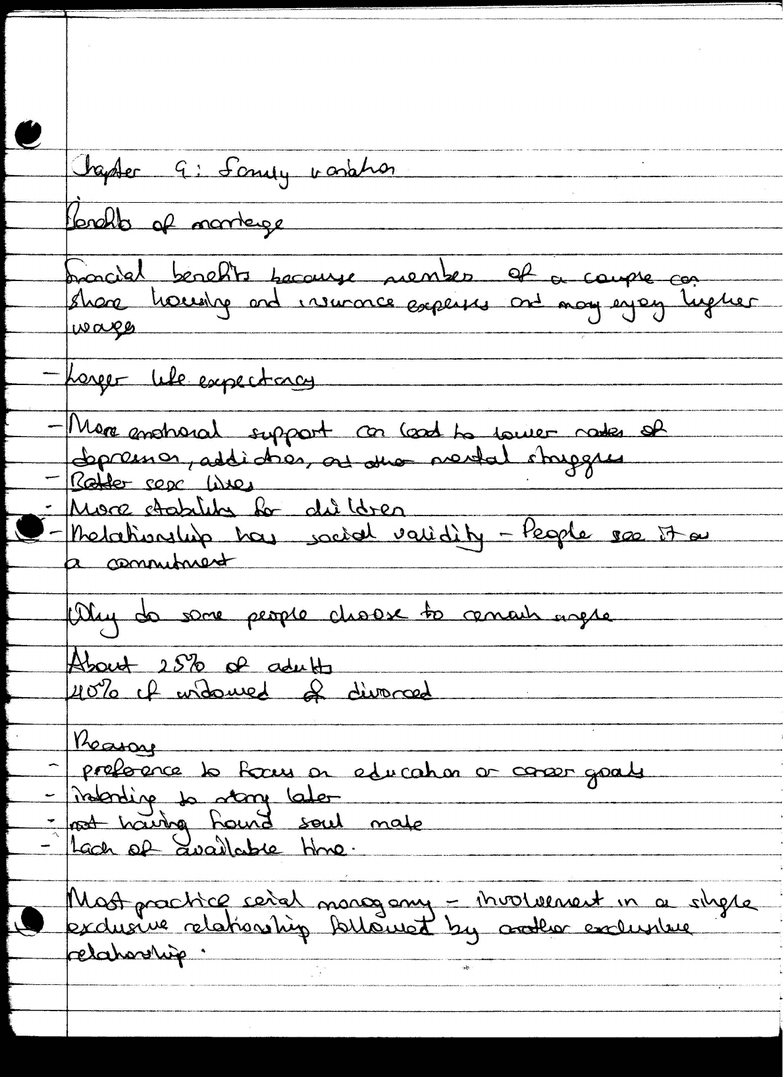 Chapter 9: Family variation
Benefits of marriage
financial benefits because member of a couple can
share housing and insurance expenses and may enjoy higher
wages
- Longer life expectancy
- More emotional support can lead to lower rates of
depression, addiction, and other mental struggles
- Better sex lives
- More stability for children
- Relationship has social validity - People see it as
a commitment
Why do some people choose to remain single
About 25% of adults
40% if widowed of divorced
Reasons
- preference to focus on education or career goals
- intending to marry later
- not having found soul mate
- Lack of available time.
Most practice serial monogamy - involvement in a single
exclusive relationship followed by another exclusive
relationship.